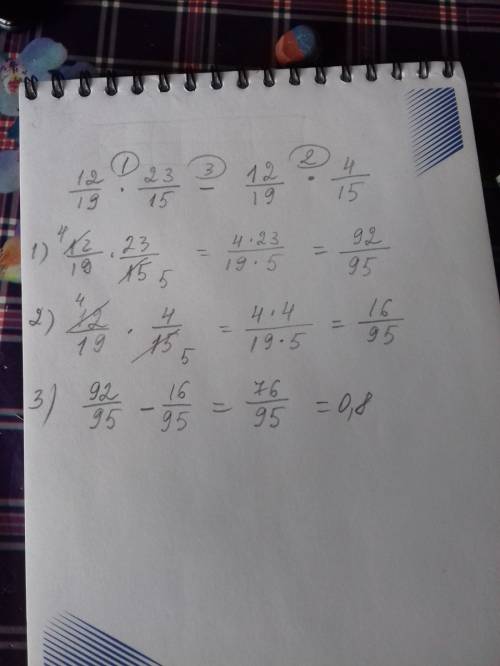 12/19 · 23/15 − 12/19 · 4/15
1) 12/19 · 23/15 = 4·23/19·5 = 92/95
2) 12/19 · 4/15 = 4·4/19·5 = 16/95
3) 92/95 − 16/95 = 76/95 = 0,8